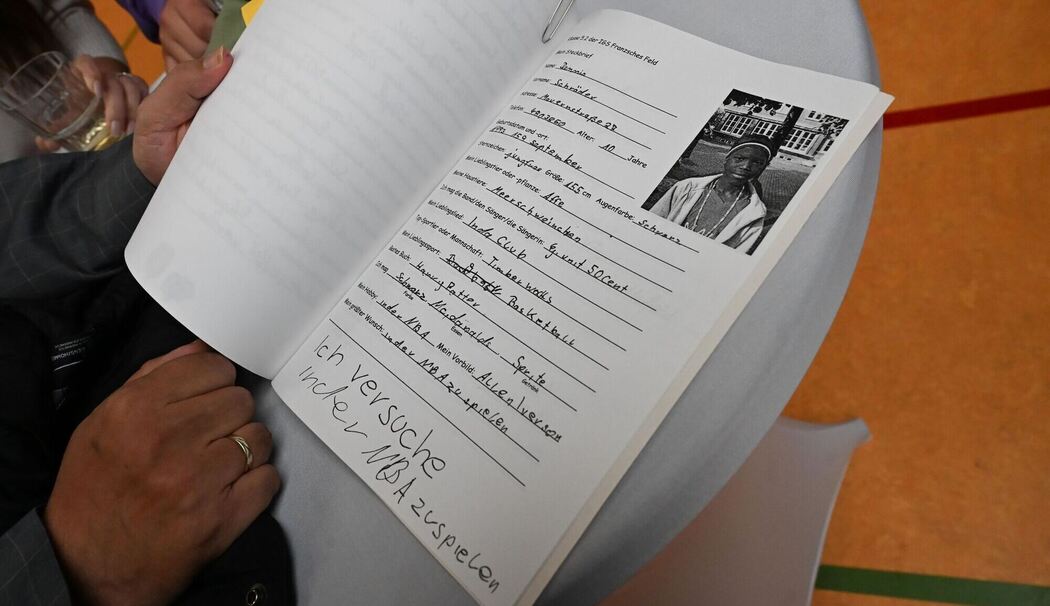 Klasse 5.2 der IGS Franzsches Feld
Mein Steckbrief
Name: Dennis
Vorname: Schröder
Adresse: Mauernstraße 28
Telefon: Alter: 10 Jahre
Geburtsdatum und -ort:
September
Sternzeichen: jungfrau Größe: 155 cm Augenfarbe: Schwarz
Mein Lieblingstier oder -pflanze: Affe
Meine Haustiere: Meerschweinchen
Ich mag die Band/den Sänger/die Sängerin: G,unit 50Cent
Mein Lieblingslied: Inda Club
Top-Sportler oder Mannschaft: Timberwolfs
Mein Lieblingssport: Basketball
Meine Buch: Harry Potter
Ich mag: Schwarz Mcdonalds, Sprite
Farbe Essen Getränk
Mein Hobby: in der NBA Mein Vorbild: Allen Iverson
Mein größter Wunsch: in der NBA zu spielen
Ich versuche
in der NBA zu spielen